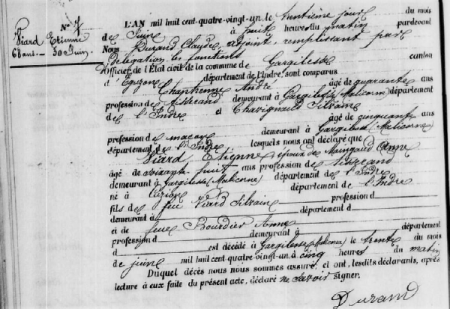 N° 7
Viard Etienne
68 ans
30 Juin
L'AN mil huit cent quatre-vingt-un le trentième jour du mois
de Juin à huit heures du matin pardevant
Nous Durand Claude adjoint, remplissant par
délégation les fonctions
d'Officier de l'État civil de la commune de Gargilesse canton
d'Eguzon département de l'Indre, sont comparus
Chartrenne André âgé de quarante ans
profession de Tisserand demeurant à Gargilesse Malicorne département
de l'Indre et Chavignaud Silvain
âgé de cinquante ans
profession de maçon demeurant à Gargilesse Malicorne
département de l'Indre, lesquels nous ont déclaré que
Viard Etienne époux de Anne
âgé de soixante huit ans profession de tisserand
demeurant à Gargilesse Malicorne département de l'Indre
né à département de l'Indre
fils de feu Viard Silvain profession d
demeurant à département d
et de feue Bourdier Anne
profession d demeurant à département
d est décédé à Gargilesse Malicorne le trente du mois
de juin mil huit cent quatre-vingt-un à cinq heures du matin
Duquel décès nous nous sommes assuré, et ont, lesdits déclarants, après
lecture à eux faite du présent acte, déclaré ne savoir signer.
Durand